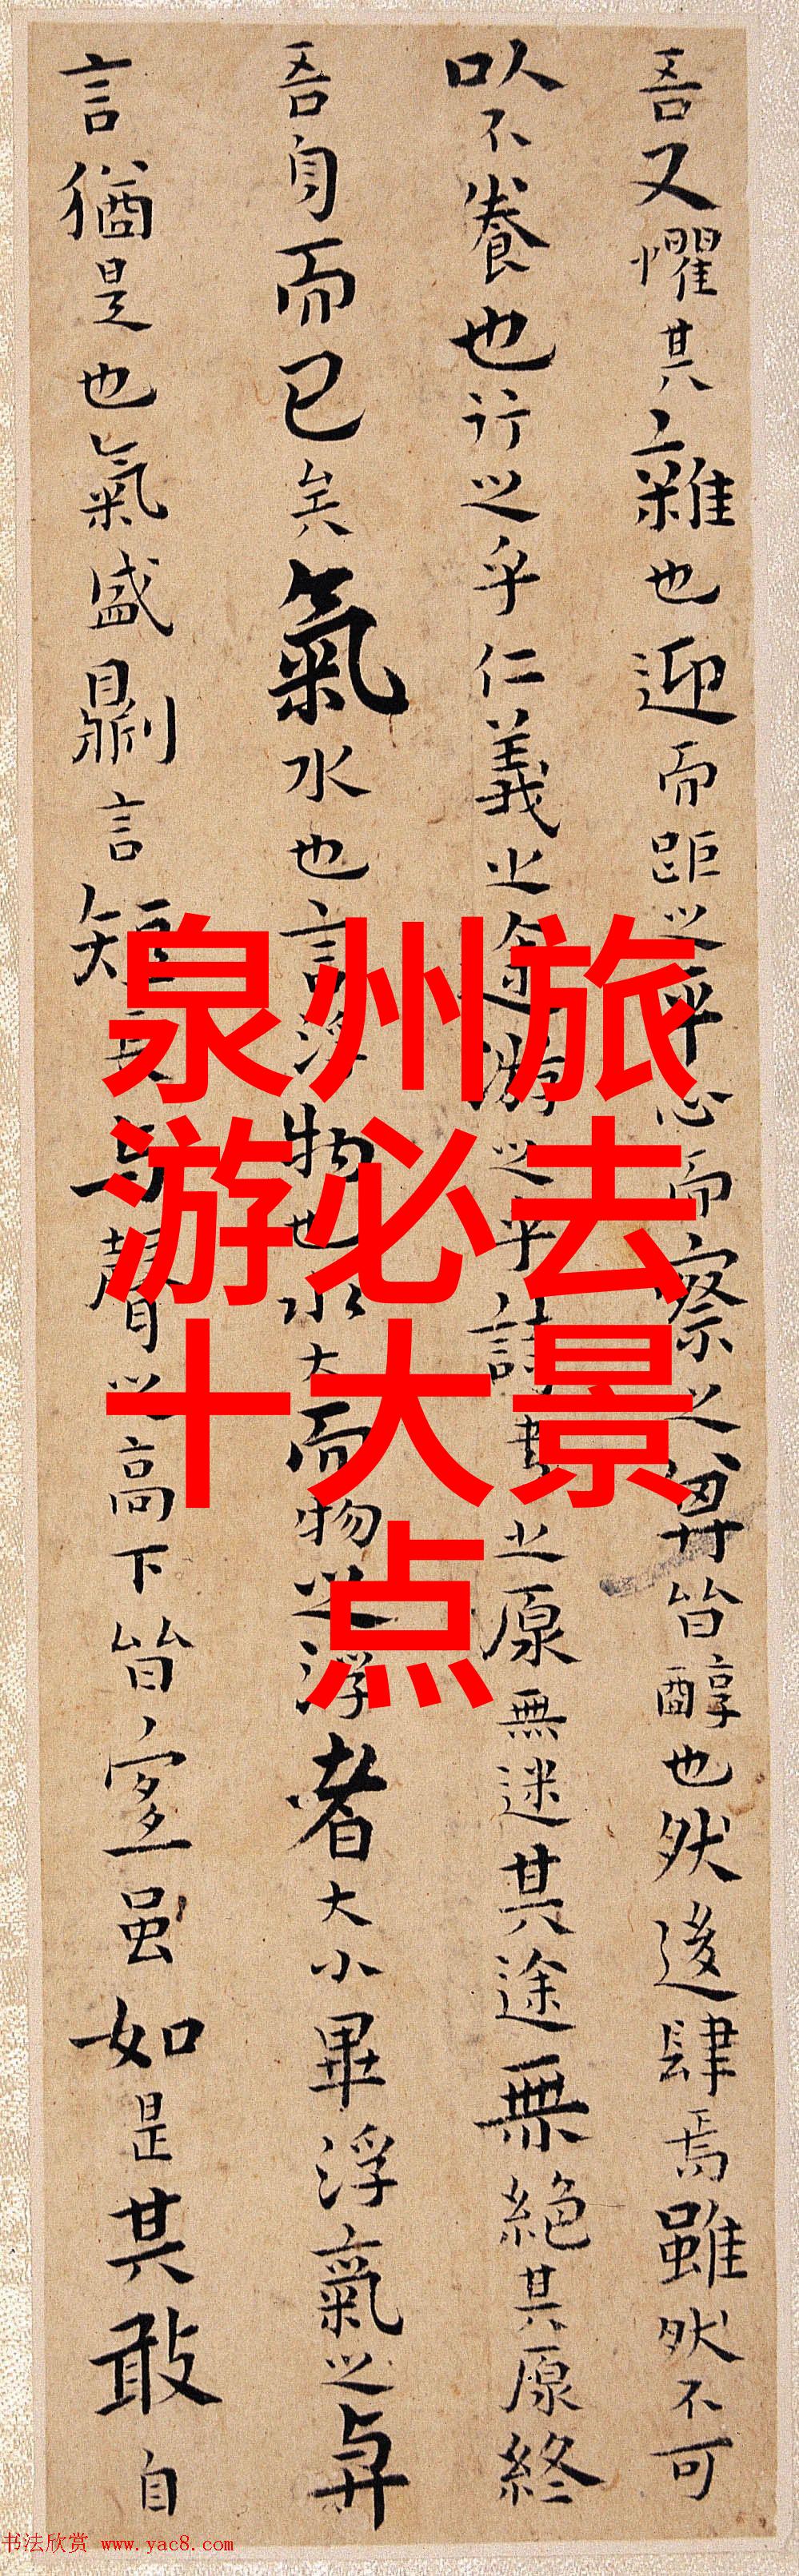 吾又懼其雜也迎而距之平心而察之其皆醇也然後肆焉雖然不可
以不養也行之乎仁義之途游之乎詩書之原無迷其途無絕其原終
吾身而已矣氣水也言浮物也水大而物之浮者大小畢浮氣之與
言猶是也氣盛則言短長與聲之高下皆宜虽如是其敢自
泉州旅
游必去
十大景
点
书法欣赏 www.yac8.com